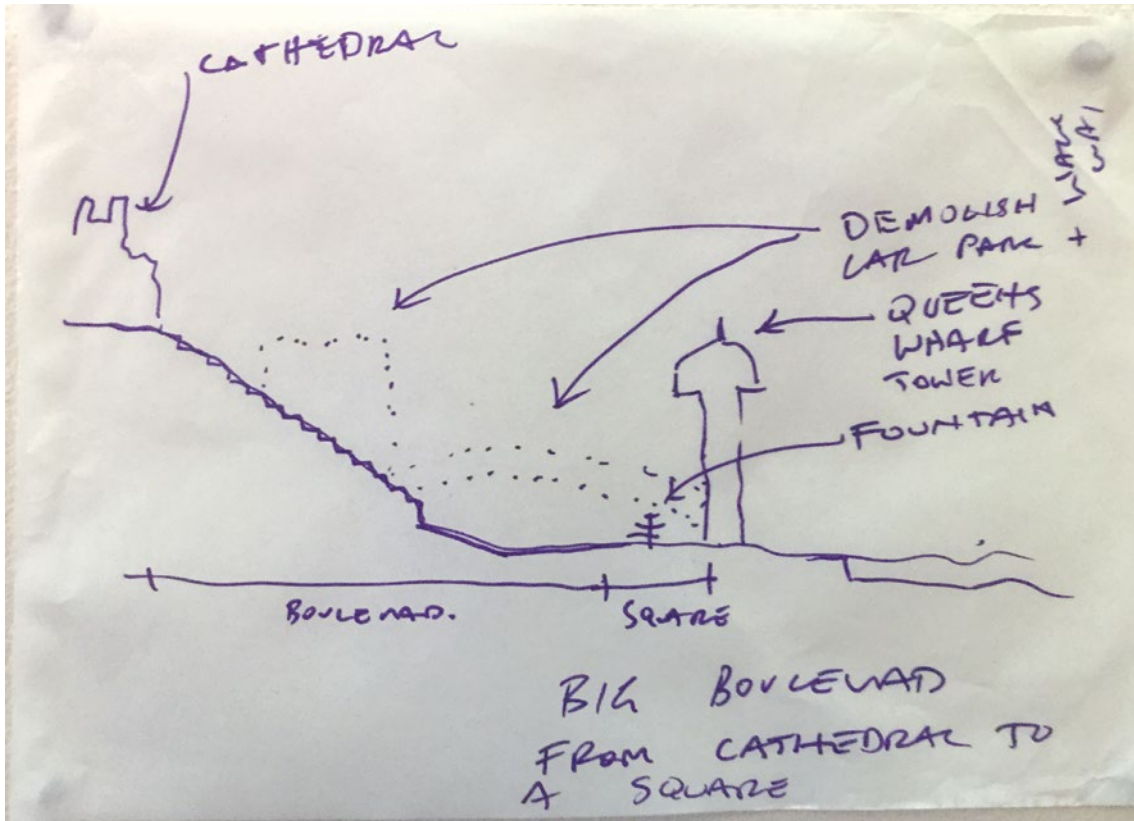 CATHEDRAL
DEMOLISH
CAR PARK + WALK
WAY
QUEENS
WHARF
TOWER
FOUNTAIN
BOULEVAD.
SQUARE
BIG BOULEVAD
FROM CATHEDRAL TO
A SQUARE